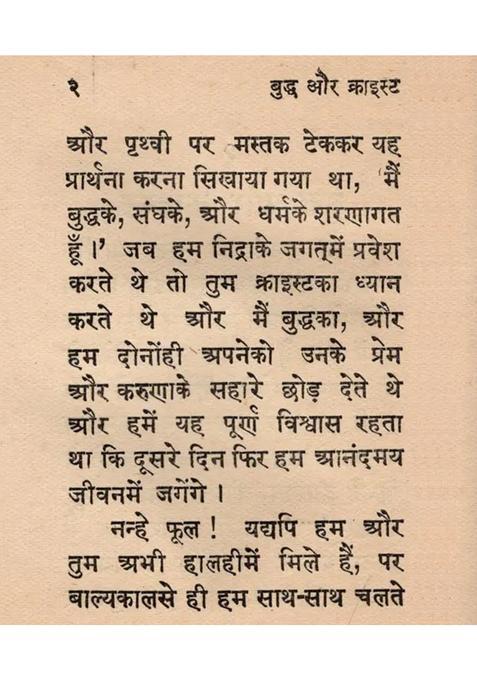 २ बुद्ध और क्राइस्ट
और पृथ्वी पर मस्तक टेककर यह
प्रार्थना करना सिखाया गया था, 'मैं
बुद्धके, संघके, और धर्मके शरणागत
हूँ।' जब हम निद्राके जगत्‌में प्रवेश
करते थे तो तुम क्राइस्टका ध्यान
करते थे और मैं बुद्धका, और
हम दोनोंही अपनेको उनके प्रेम
और करुणाके सहारे छोड़ देते थे
और हमें यह पूर्ण विश्वास रहता
था कि दूसरे दिन फिर हम आनंदमय
जीवनमें जगेंगे ।
नन्हे फूल ! यद्यपि हम और
तुम अभी हालहीमें मिले हैं, पर
बाल्यकालसे ही हम साथ-साथ चलते